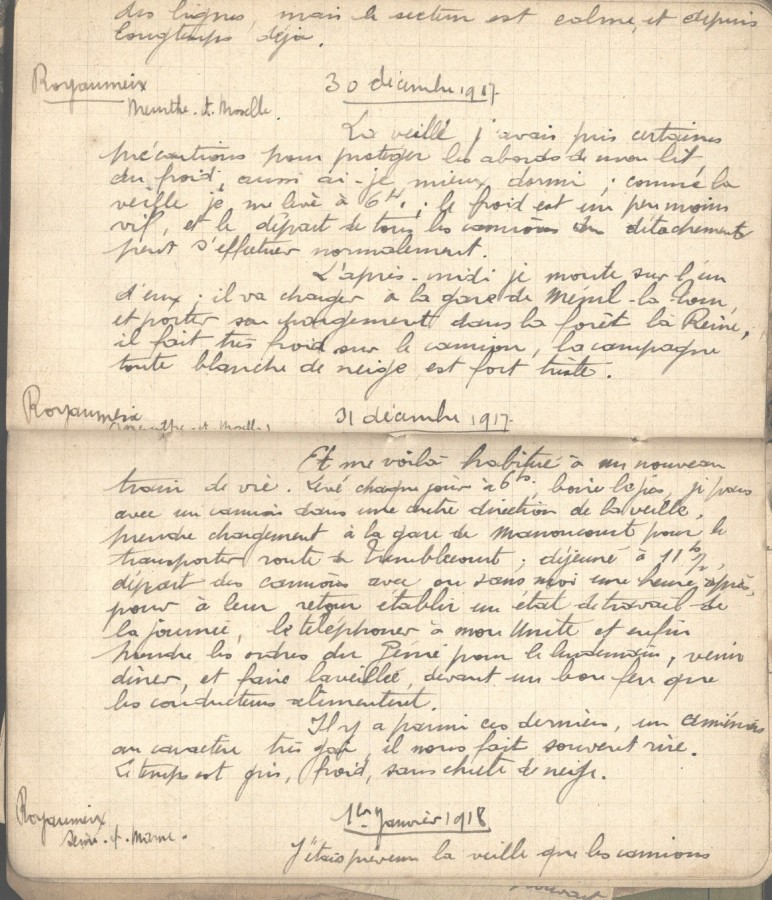 des lignes, mais le secteur est calme, et depuis
longtemps déja.
Royaumeix
30 décembre 1917.
Meurthe-et-Moselle.
La veille j'avais pris certaines
précautions pour protéger les abords de mon lit
du froid, aussi ai-je mieux dormi ; comme la
veille je me lève à 6h, ; le froid est un peu moins
vif, et le départ de tous les camions du détachement
peut s'effectuer normalement.
L'après-midi je monte sur l'un
d'eux ; il va charger à la gare de Ménil-la-Tour,
et porter son chargement dans la forêt la Reine,
il fait très froid sur le camion, la campagne
toute blanche de neige est fort triste.
Royaumeix
31 décembre 1917.
(Meurthe-et-Moselle)
Et me voilà habitué à un nouveau
train de vie. Levé chaque jour à 6h, boire le jus, je pars
avec un camion dans une autre direction de la veille,
prendre chargement à la gare de Manoncourt pour le
transporter route de Tremblecourt ; déjeuné à 11h/2,
départ des camions avec ou sans moi une heure après,
pour à leur retour établir un état de travail de
la journée, le téléphoner à mon Unité et enfin
prendre les ordres du Génie pour le lendemain, venir
dîner, et faire la veillée, devant un bon feu que
les conducteurs alimentent.
Il y a parmi ces derniers, un
au caractère très gai, il nous fait souvent rire.
Le temps est gris, froid, sans chute de neige.
Royaumeix
1er Janvier 1918
Seine-et-Marne.
J'étais prévenu la veille que les camions